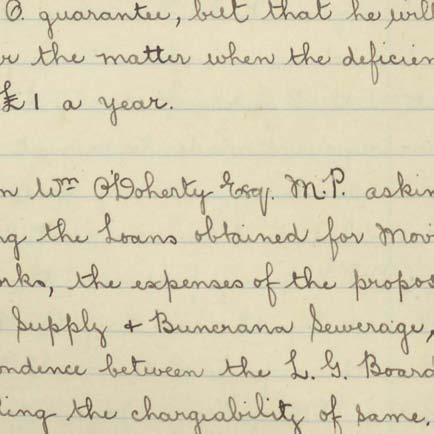 O. guarantee, but that he will
r the matter when the deficien
£1 a year.
n Wm O'Doherty Esq. M.P. askin
ng the Loans obtained for Movi
rks, the expenses of the propos
Supply & Buncrana Sewerage,
ondence between the L. G. Board
ding the chargeability of same.